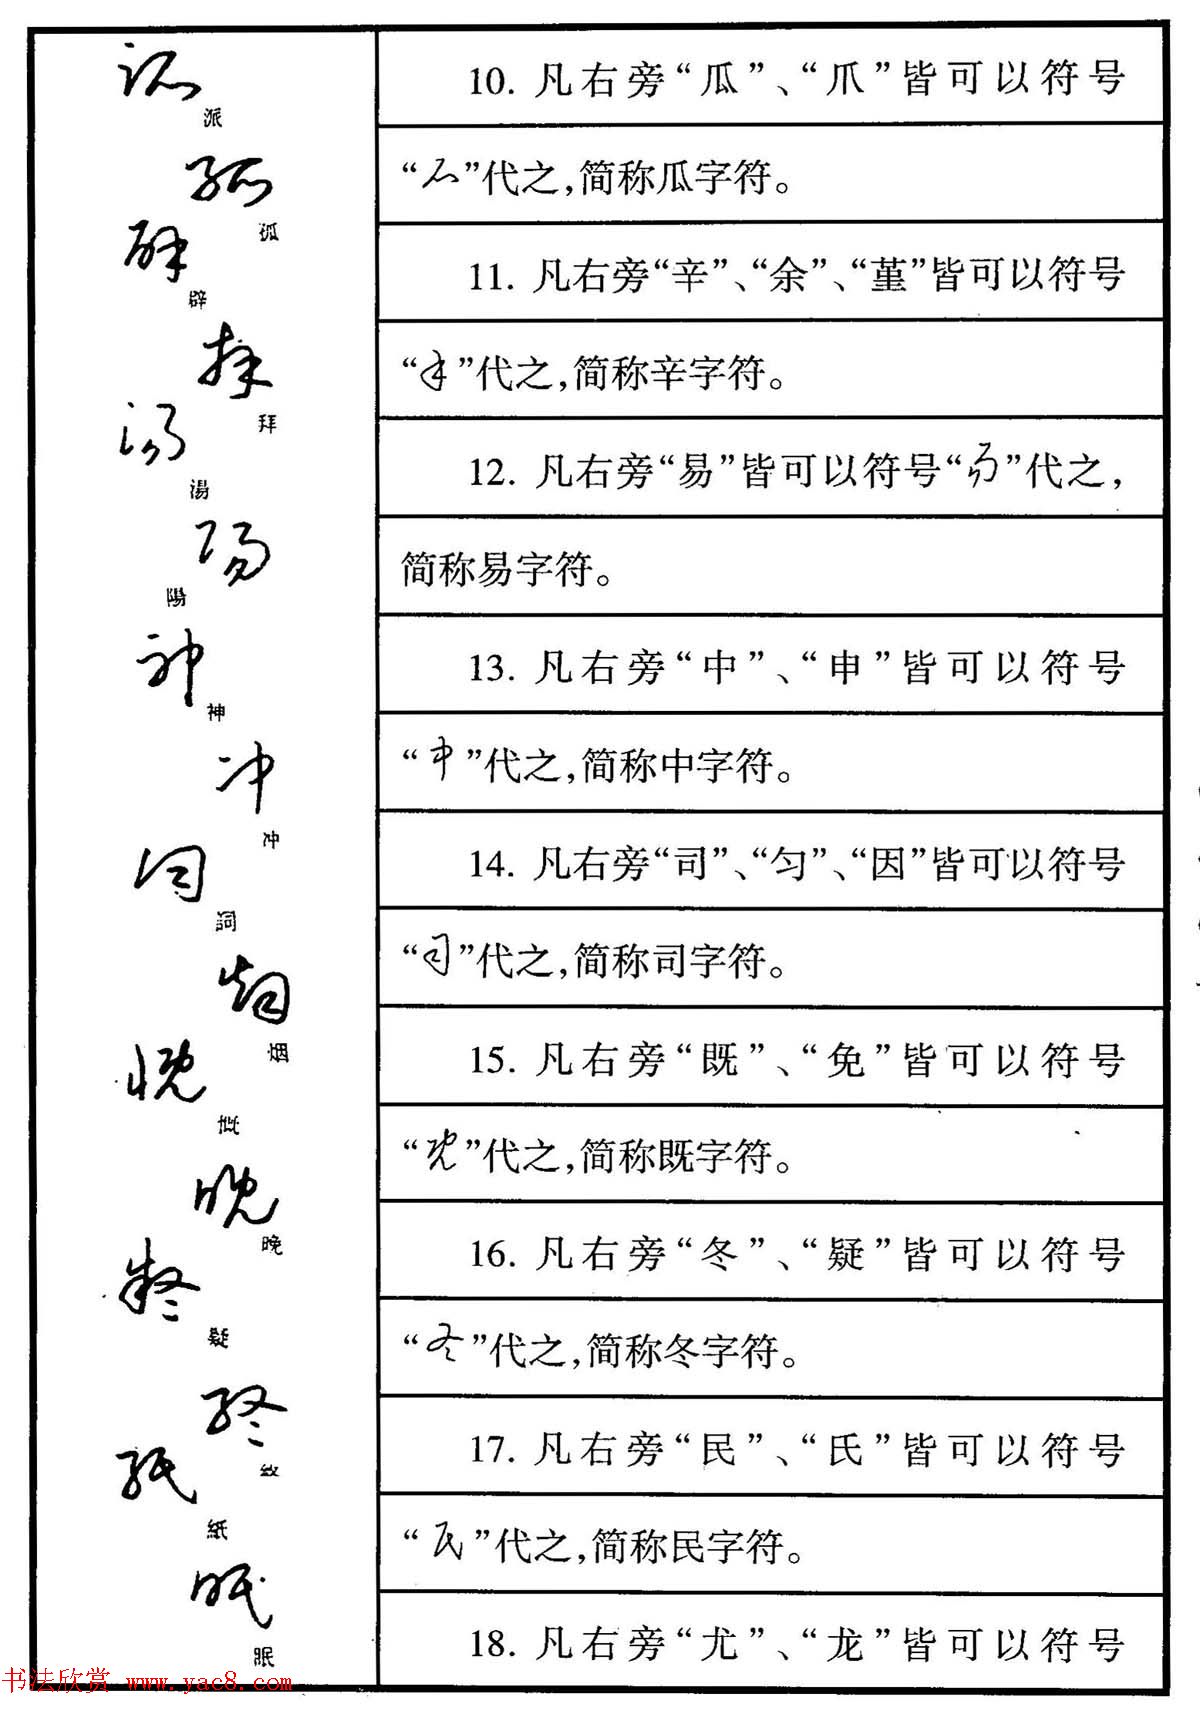 10. 凡右旁“瓜”、“爪”皆可以符号
“”代之，简称瓜字符。
11. 凡右旁“辛”、“余”、“堇”皆可以符号
“”代之，简称辛字符。
12. 凡右旁“易”皆可以符号“”代之，
简称易字符。
13. 凡右旁“中”、“申”皆可以符号
“”代之，简称中字符。
14. 凡右旁“司”、“匀”、“因”皆可以符号
“”代之，简称司字符。
15. 凡右旁“既”、“免”皆可以符号
“”代之，简称既字符。
16. 凡右旁“冬”、“疑”皆可以符号
“”代之，简称冬字符。
17. 凡右旁“民”、“氏”皆可以符号
“”代之，简称民字符。
18. 凡右旁“尤”、“龙”皆可以符号
派
孤
辟
拜
湯
陽
神
冲
詞
烟
晚
疑
紙
眠
书法欣赏 www.yac8.com